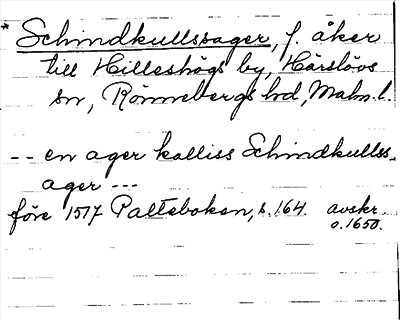 * Schindkullssager, f. åker
till Hilleshögs by, Härslövs
sn, Rönnebergs hd, Malm. l.
-- en ager kalliss Schindkullss-
ager ---
före 1517 Palteboken, s. 164. avskr.
o. 1650.